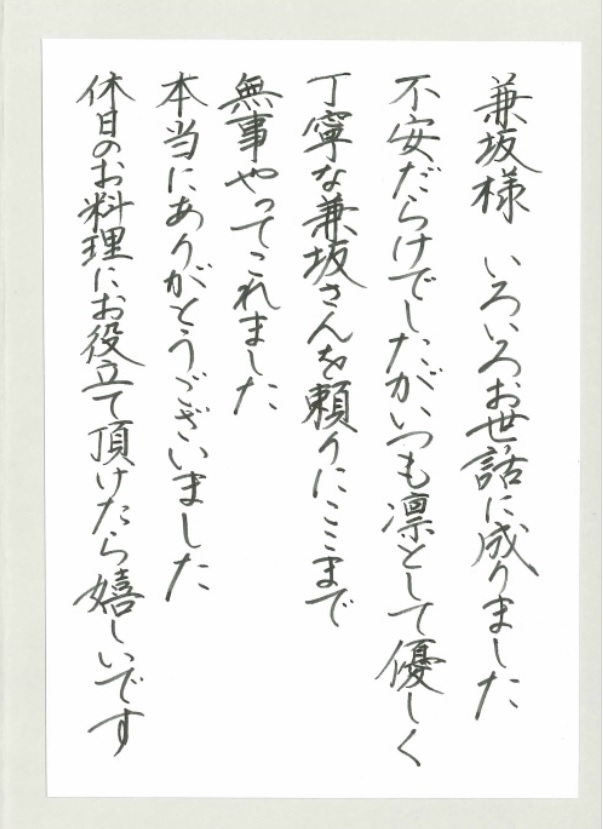 兼坂様 いろいろお世話に成りました
不安だらけでしたがいつも凛として優しく
丁寧な兼坂さんを頼りにここまで
無事やってこれました
本当にありがとうございました
休日のお料理にお役立て頂けたら嬉しいです